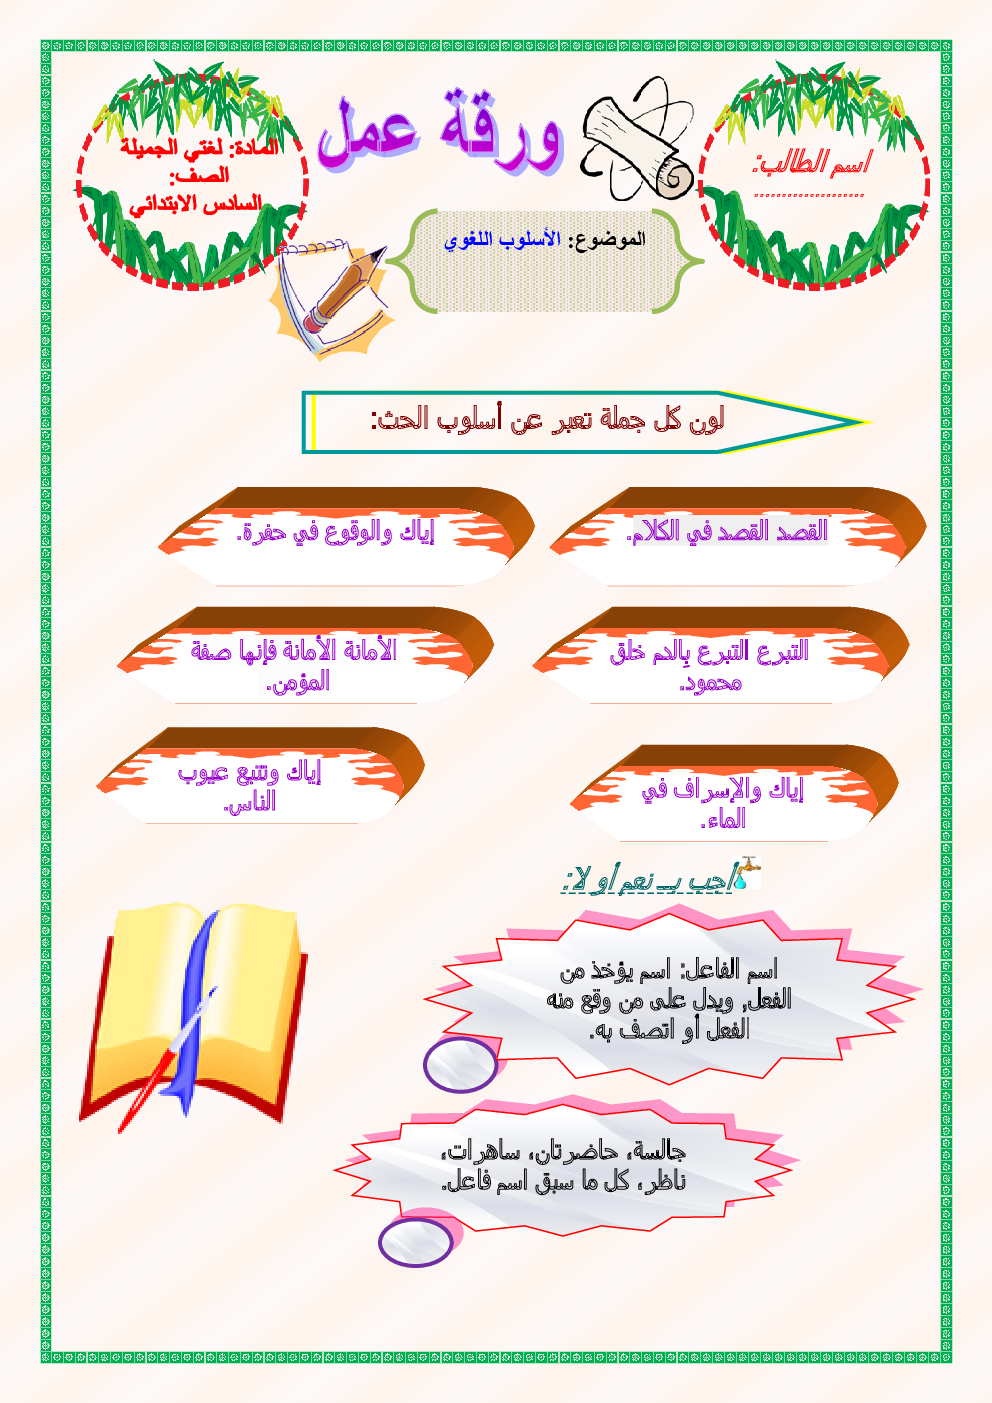 اسم الطالب:
...................
ورقة عمل
المادة: لغتي الجميلة
الصف:
السادس الابتدائي
الموضوع: الأسلوب اللغوي
لون كل جملة تعبر عن أسلوب الحث:
القصد القصد في الكلام.
إياك والوقوع في حفرة.
التبرع التبرع بِالدم خلق
محمود.
الأمانة الأمانة فإنها صفة
المؤمن.
إياك والإسراف في
الماء.
إياك وتتبع عيوب
الناس.
أجب بـــ نعم أو لا:
اسم الفاعل: اسم يؤخذ من
الفعل, ويدل على من وقع منه
الفعل أو اتصف به.
جالسة، حاضرتان، ساهرات،
ناظر، كل ما سبق اسم فاعل.